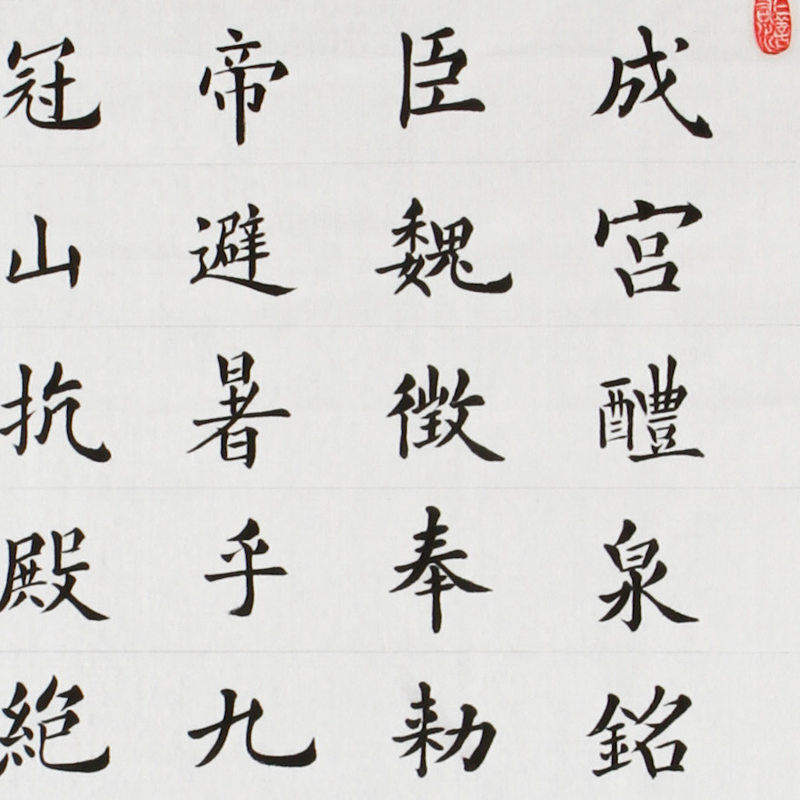 成宫醴泉銘
臣魏徵奉勑
帝避暑乎九
冠山抗殿絕